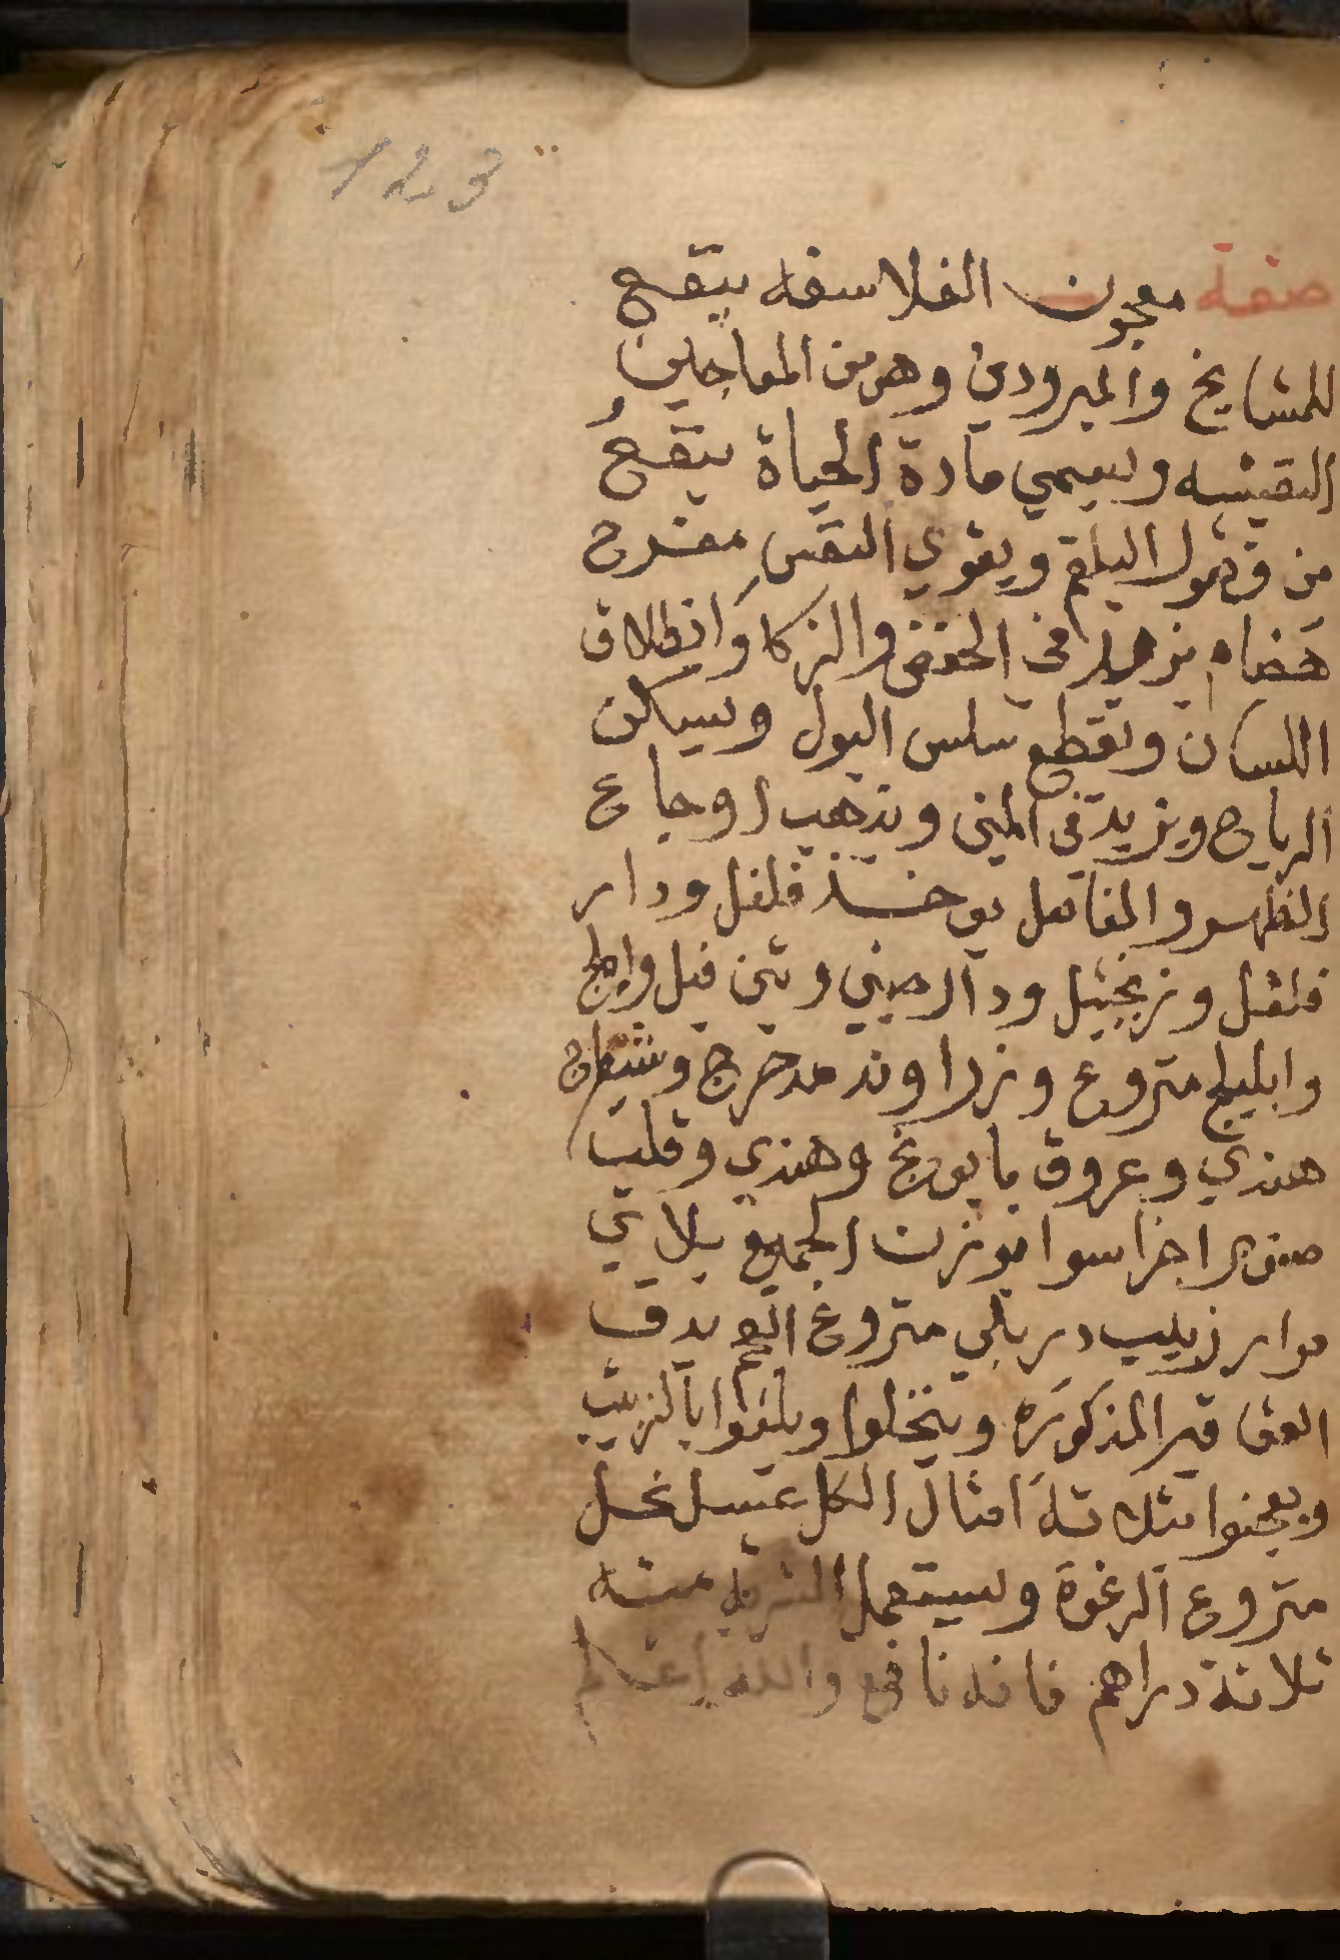 123
صفة معجون الفلاسفه ينفع
للمشايخ والمبرودين وهو من المعاجين
النفيسه ويسمي مادة الحياة ينفع
من فضول البلغم ويقوي النفس مفرح
هضام يزيد في الحفض والزكا وانطلاق
اللسان ويقطع سلس البول ويسكن
الرياح ويزيد في المني ويذهب اوجاع
الظهر والمفاصل يوخذ فلفل ودار
فلفل وزنجبيل ودارصيني و فيل واملج
وابليلج منزوع وزراوند مدحرج وشيطرج
هندي وعروق بابونج وهندي وقلب
صنوبر اجزا سوا يوزن الجميع بلاتي
زبيب دربلي منزوع العجم يدق
العقاقير المذكوره وينخلوا ويلتوا بالزبيب
ويعجنوا بثلاثة امثال الكل عسل نحل
منزوع الرغوة ويستعمل الشربه منه
ثلاثة دراهم فانه نافع والله اعلم